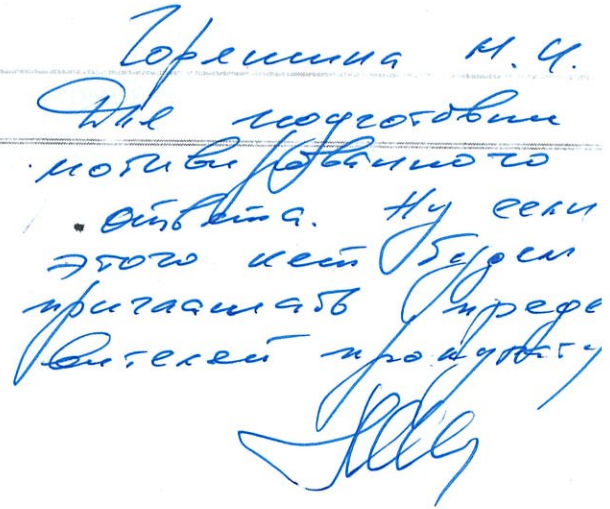 Горяинина Н. И.
Для подготовки
мотивированного
ответа. Ну если
этого нет будем
приглашать предс
вителей прокурату